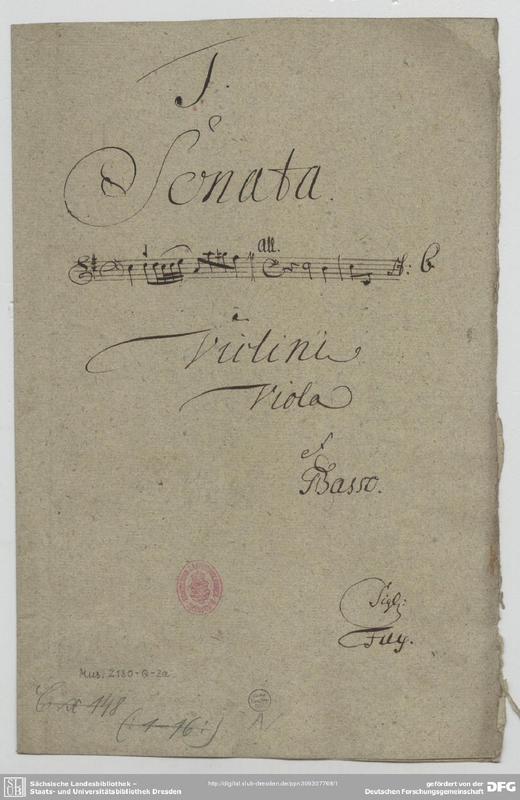 Sonata.
all.
à
Violini
Viola
et
Basso.
Sigl:
Mus. 2130-Q-2a
148
(: 1-16 :)
Sächsische Landesbibliothek –
Staats- und Universitätsbibliothek Dresden
http://digital.slub-dresden.de/ppn309307768/1
gefördert von der
Deutschen Forschungsgemeinschaft
DFG